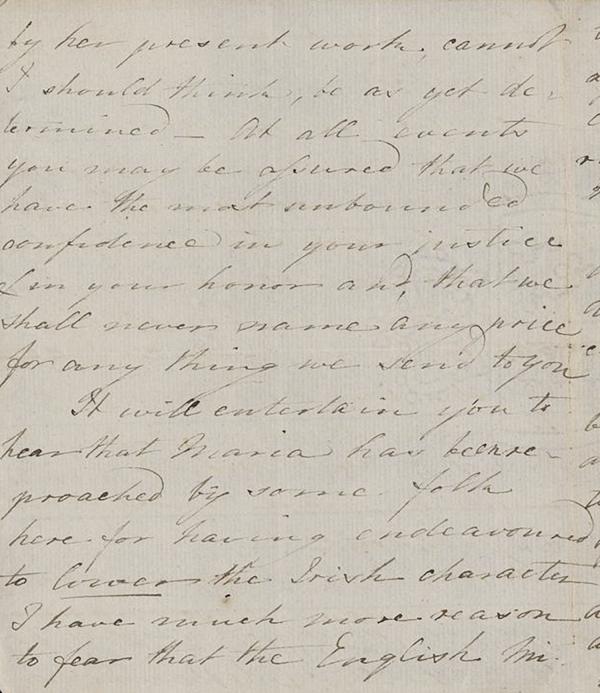 by her present work, cannot
I should think, be as yet de-
termined — At all events
you may be assured that we
have the most unbounded
confidence in your justice
& in your honor and, that we
shall never name any price
for any thing we send to you
It will entertain you to
hear that Maria has been re-
proached by some folk
here for having endeavoured
to lower the Irish character
I have much more reason
to fear that the English Mi-